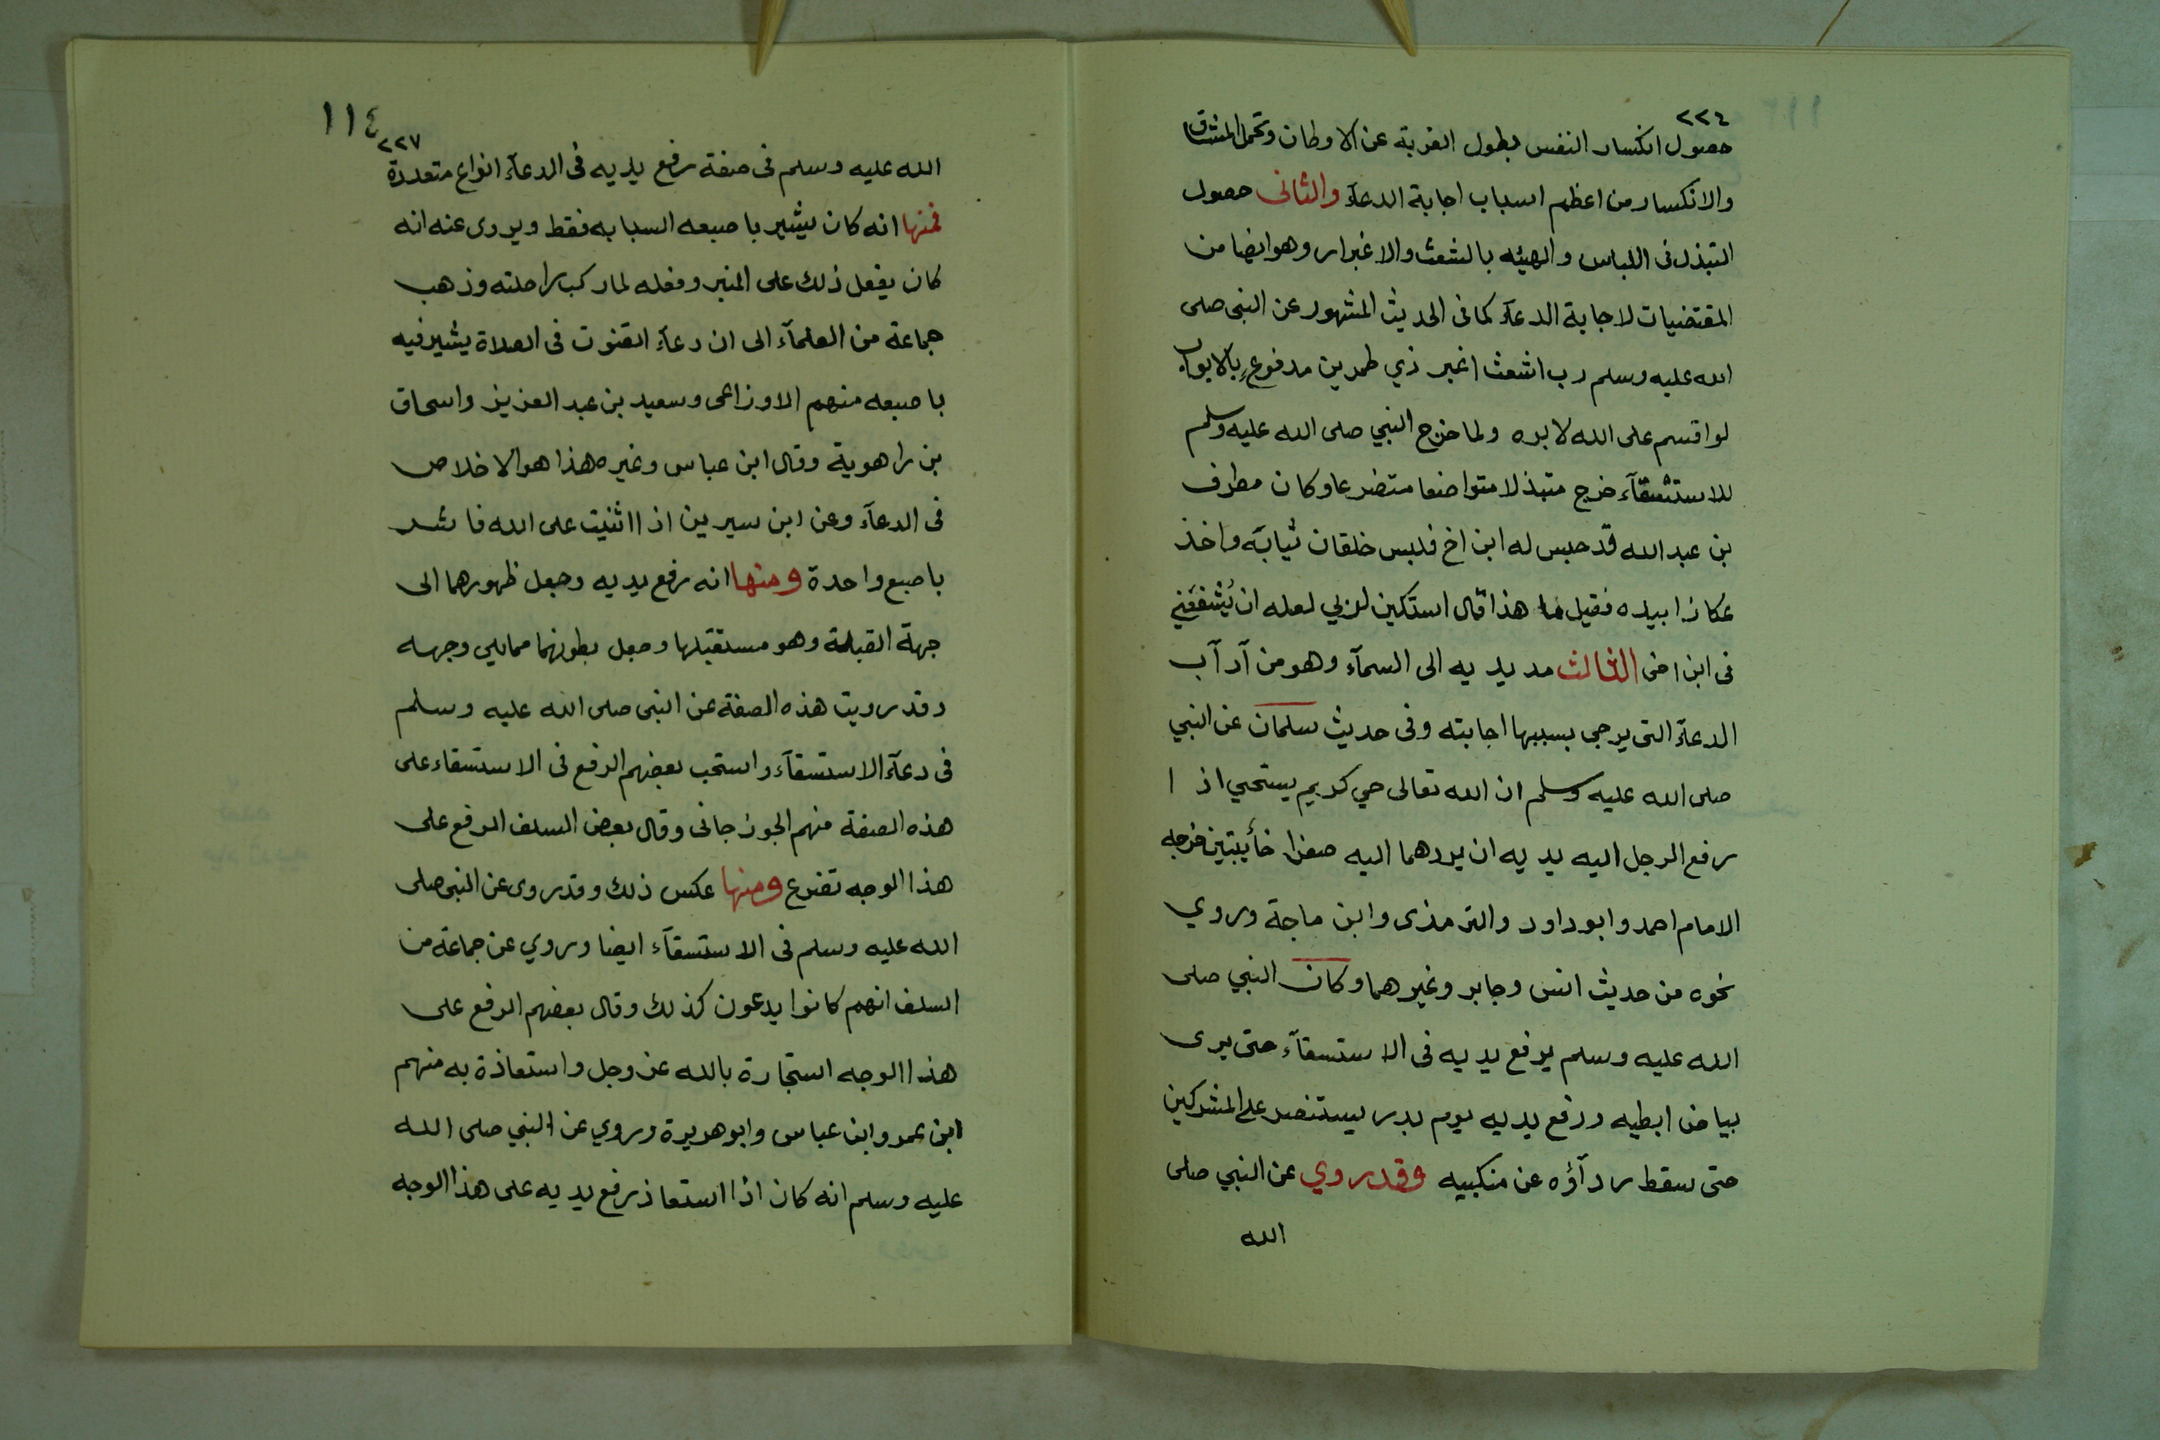 ٢٢٤
حصول انكسار النفس بطول الغربة عن الاوطان وتحمل المشاق
والانكسار من اعظم اسباب اجابة الدعآء والثانى حصول
التبذل فى اللباس والهيئه بالشعث والاغبرار وهو ايضا من
المقتضيات لاجابة الدعآء كما فى الحديث المشهور عن النبى صلى
الله عليه وسلم رب اشعث اغبر ذي طمرين مدفوع بالابواب
لو اقسم على الله لابره ولما خرج النبي صلى الله عليه وسلم
للاستسقآء خرج متبذلا متواضعا متضرعا وكان مطرف
بن عبد الله قد حبس له ابن اخ فلبس خلقان ثيابه واخذ
عكازا بيده فقيل ما هذا قال استكين لربي لعله ان يشفعني
فى ابن اخى الثالث مد يديه الى السمآء وهو من آداب
الدعآء التى يرجى بسببها اجابته وفى حديث سلمان عن النبي
صلى الله عليه وسلم ان الله تعالى حي كريم يستحيي اذا
رفع الرجل اليه يديه ان يردهما اليه صفرا خآئبتين خرجه
الامام احمد وابو داود والترمذى وابن ماجة وروي
نحوه من حديث انس وجابر وغيرهما وكان النبي صلى
الله عليه وسلم يرفع يديه فى الاستسقآء حتى يرى
بياض ابطيه ورفع يديه يوم بدر يستنصر على المشركين
حتى سقط ردآؤه عن منكبيه وقد روي عن النبي صلى
الله
١١٤
٢٢٧
الله عليه وسلم فى صفة رفع يديه فى الدعآء انواع متعددة
فمنها انه كان يشير باصبعه السبابه فقط ويروى عنه انه
كان يفعل ذلك على المنبر وفعله لما ركب راحلته وذهب
جماعة من العلمآء الى ان دعآء القنوت فى الصلاة يشير فيه
باصبعه منهم الاوزاعى وسعيد بن عبد العزيز واسحاق
بن راهوية وقال ابن عباس وغيره هذا هو الاخلاص
فى الدعآء وعن ابن سيرين اذا اثنيت على الله فاشر
باصبع واحدة ومنها انه رفع يديه وجعل ظهورهما الى
جهة القبلة وهو مستقبلها وجعل بطونهما مما يلي وجهه
وقد رويت هذه الصفة عن النبى صلى الله عليه وسلم
فى دعآء الاستسقآء واستحب بعضهم الرفع فى الاستسقاء على
هذه الصفة منهم الجوزجانى وقال بعض السلف الرفع على
هذا الوجه تضرع ومنها عكس ذلك وقد روى عن النبى صلى
الله عليه وسلم فى الاستسقآء ايضا وروي عن جماعة من
السلف انهم كانوا يدعون كذلك وقال بعضهم الرفع على
هذا الوجه استجارة بالله عز وجل واستعاذة به منهم
ابن عمر وابن عباس وابو هريرة وروي عن النبي صلى الله
عليه وسلم انه كان اذا استعاذ رفع يديه على هذا الوجه